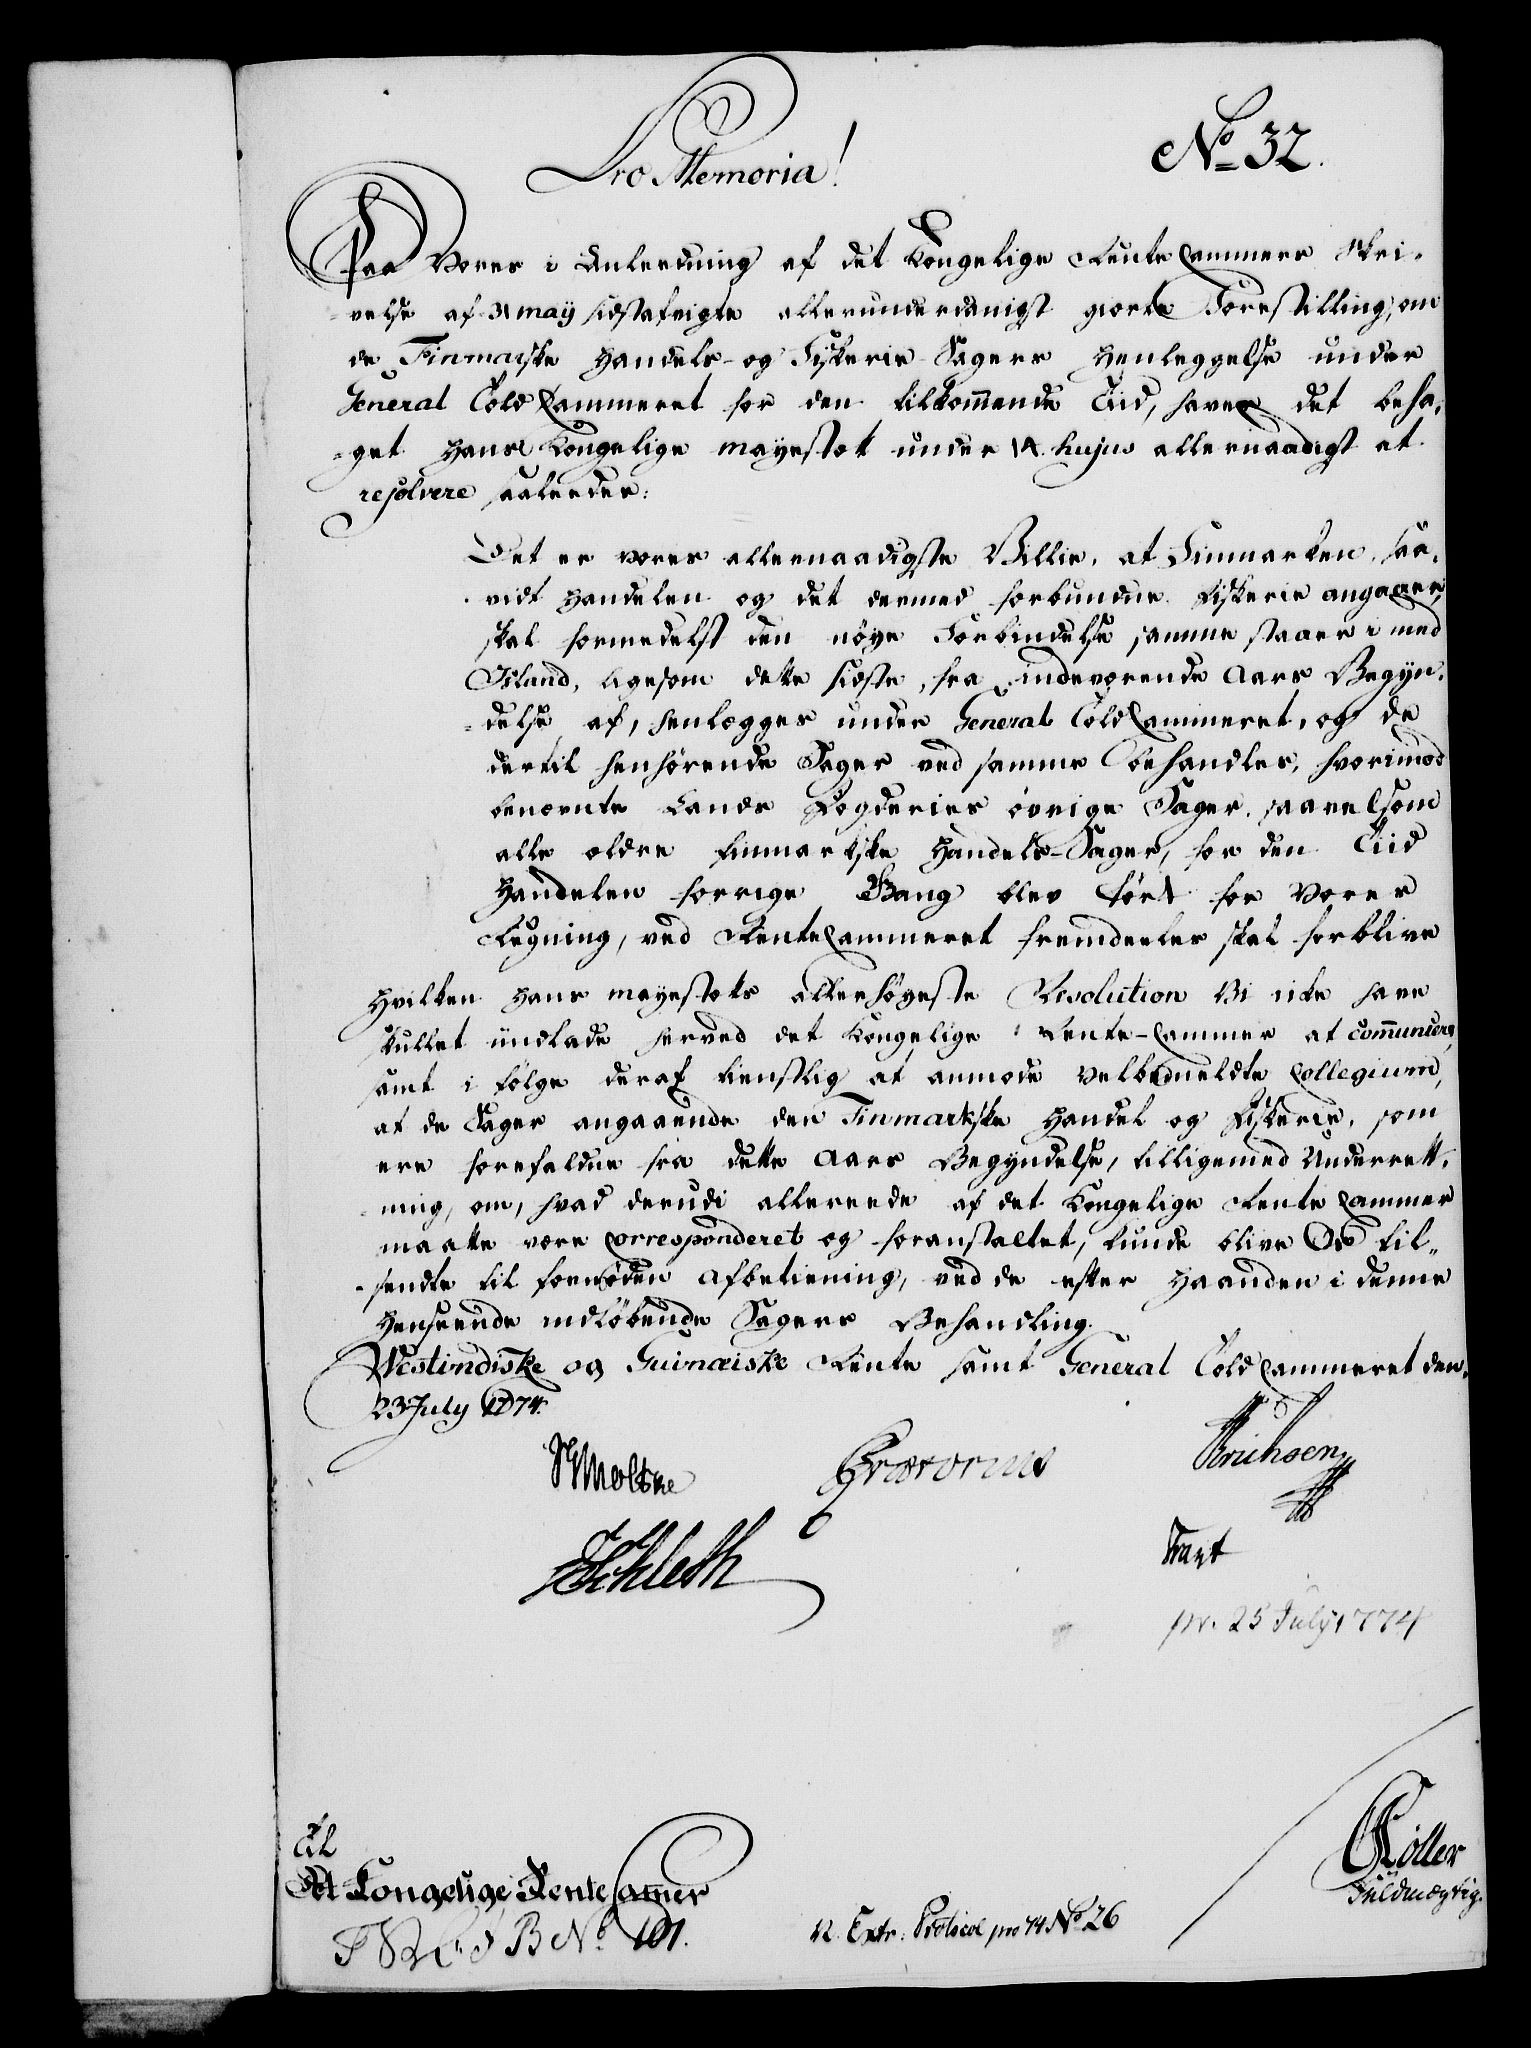 No 32.
Pro Memoria!
Paa Vores i Anleedning af det Kongelige Rente Cammers Skri-
velse af 31 may sidstafvigte allerunderdanigst giorte Forestilling, om
de Finmarske Handels- og Fiskerie-Sagers Henleggelse under
General Told Cammeret for den tilkom̄ende Tiid, haver det beha-
get Hans Kongelige Mayestæt under 14. hujus allernaadigst at
resolvere saaleedes:
Det er vores allernaadigste Villie, at Finmarken, saa-
vidt Handelen og det dermed forbundne Fiskerie angaaer,
skal formedelst den nøye Forbindelse samme staaer i med
Island, ligesom dette sidste, fra indeværende Aars Begyn-
delse af, henlægges under General Told Cammeret, og de
dertil henhørende Sager ved samme behandles, hvorimod
benævnte Lands Fogderies øvrige Sager, saavelsom
alle ældre Finmarkske Handels-Sager, for den Tiid
Handelen forrige Gang blev ført for Vores
Regning, ved Rente Cammeret fremdeeles skal forblive
Hvilken Hans Mayestæts allerhøyeste Resolution Vi icke have
skullet undlade herved det Kongelige Rente-Cammer at com̄unicere,
samt i følge deraf tienstlig at anmode Velbemeldte Collegium,
at de Sager angaaende den Finmarkske Handel og Fiskerie, som
ere forefaldne fra dette Aars Begyndelse, tilligemed Underrett-
ning, om, hvad derudi allereede af det Kongelige Rente Cammer
maatte være Corresponderet og foranstaltet, kunde blive Os til-
sendte til fornøden Afbetiening, ved de efter Haanden i denne
Henseende indløbende Sagers Behandling.
Westindiske og Guinæiske Rente samt General Told Cammeret den
23 July 1774.
Moltke Prætorius Erichsen
Schleth Trant
pr. 25 July 1774
Töller
Fuldmægtig.
Til
Det Kongelige Rente Cam̄er
B No 101.
Extr: Protocol pro 74 No 26